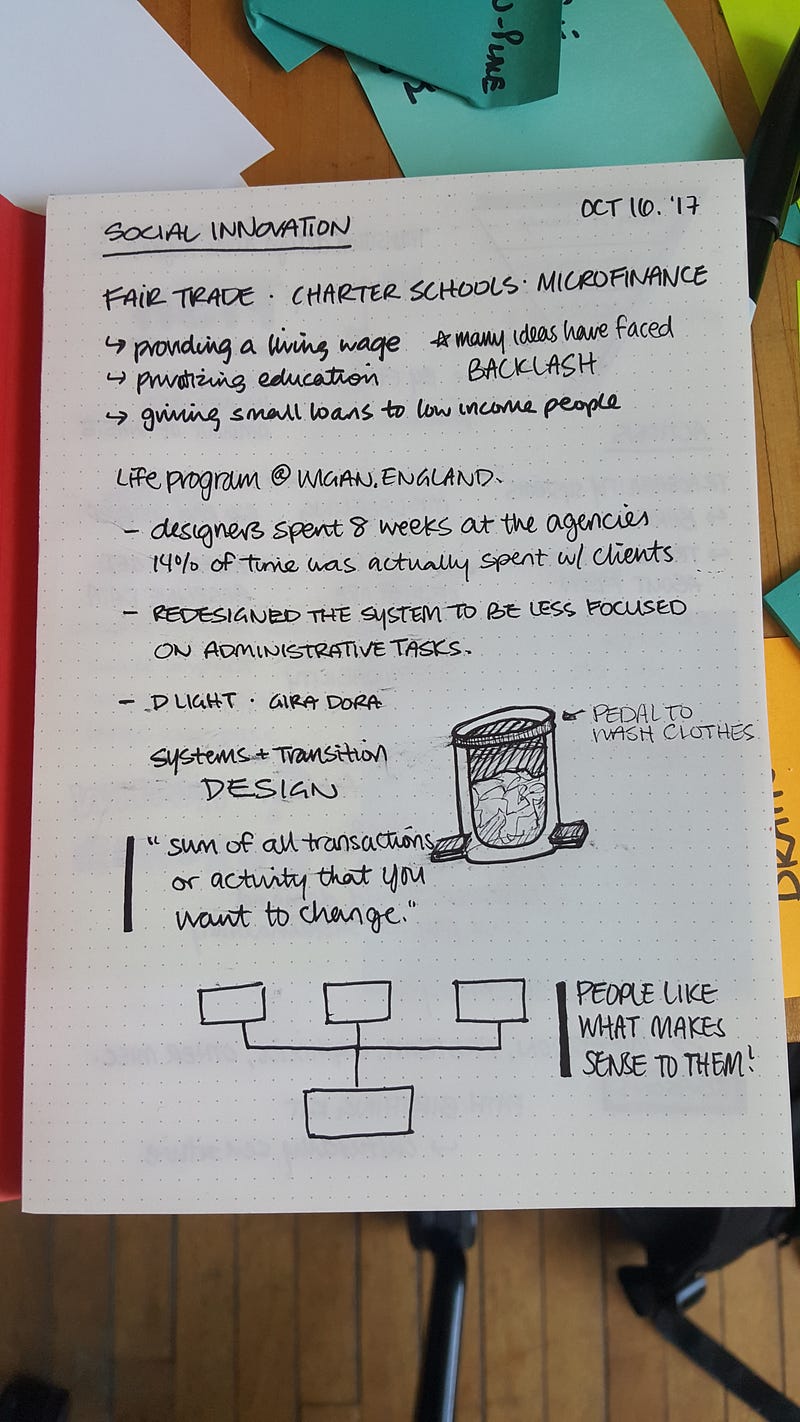 SOCIAL INNOVATION
OCT 16. '17
FAIR TRADE · CHARTER SCHOOLS · MICROFINANCE
↳ providing a living wage
☆ many ideas have faced
BACKLASH
↳ privatizing education
↳ giving small loans to low income people
Life program @ WIGAN, ENGLAND.
- designers spent 8 weeks at the agencies
14% of time was actually spent w/ clients
- REDESIGNED THE SYSTEM TO BE LESS FOCUSED
ON ADMINISTRATIVE TASKS.
- D LIGHT · GIRA DORA
← PEDAL TO
WASH CLOTHES
systems + Transition
DESIGN
"sum of all transactions
or activity that you
want to change."
PEOPLE LIKE
WHAT MAKES
SENSE TO THEM!